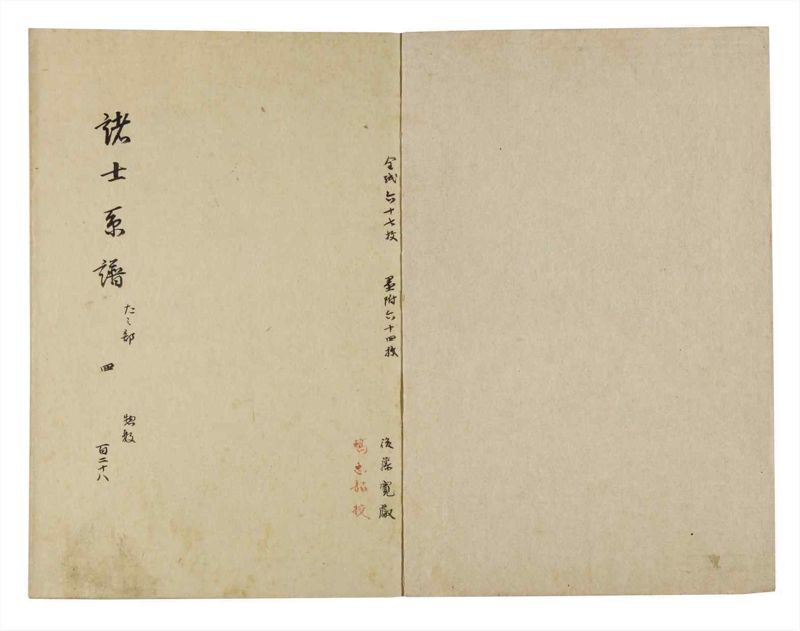 全紙六十七枚　墨附六十四枚
後藤寛蔵
忠
諸士系譜　たノ部　四　惣数
百二十八